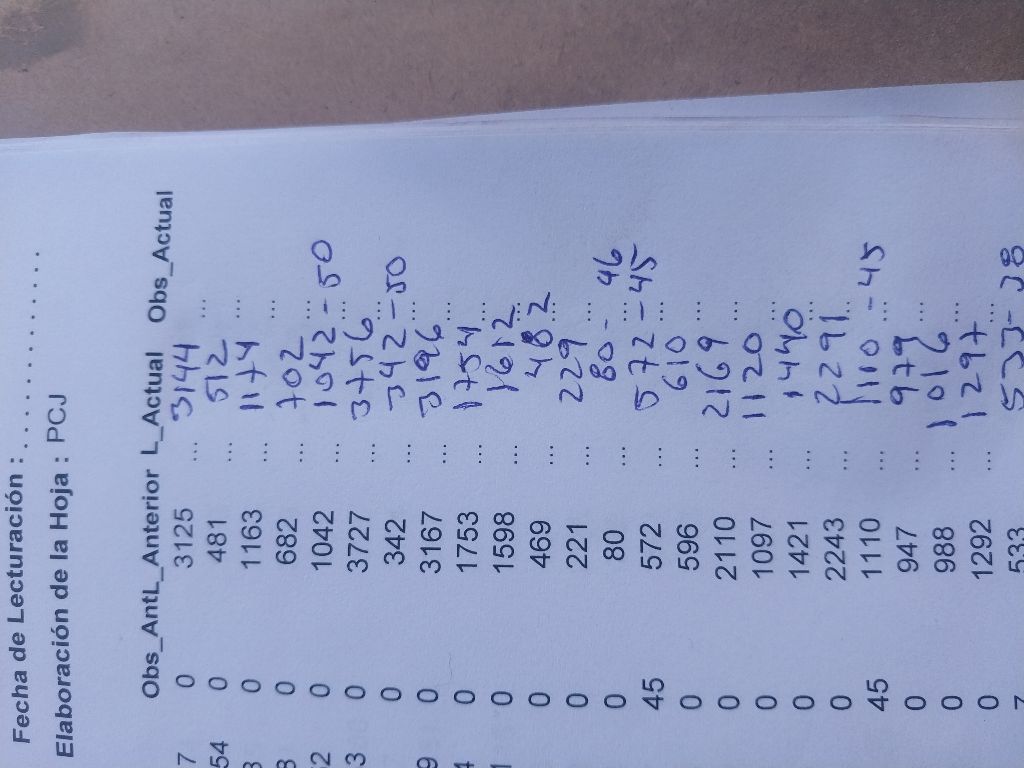 Fecha de Lecturación : ......................
Elaboración de la Hoja : PCJ
Obs_AntL_Anterior L_Actual Obs_Actual
7 0 3125 ... 3144 ...
54 0 481 ... 512 ...
3 0 1163 ... 1174 ...
3 0 682 ... 702 ...
2 0 1042 ... 1042 - 50 ...
3 0 3727 ... 3756 ...
0 342 ... 342 - 50 ...
9 0 3167 ... 3196 ...
4 0 1753 ... 1754 ...
1 0 1598 ... 1612 ...
0 469 ... 482 ...
0 221 ... 229 ...
0 80 ... 80 - 46 ...
45 572 ... 572 - 45 ...
0 596 ... 610 ...
0 2110 ... 2169 ...
0 1097 ... 1120 ...
0 1421 ... 1440 ...
0 2243 ... 2291 ...
45 1110 ... 1110 - 45 ...
0 947 ... 979 ...
0 988 ... 1016 ...
0 1292 ... 1297 ...
7 533 533 - 38